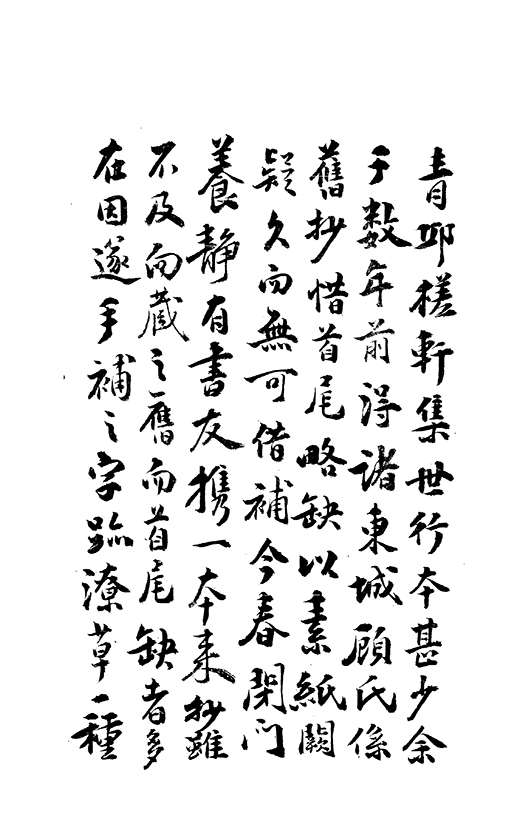 青邱槎軒集世行本甚少余
于数年前得諸東城顧氏係
舊抄惜首尾略缺以素紙闕
疑久而無可借補今春閉门
養静有書友携一本来抄雖
不及向蔵之舊而首尾缺者多
在因遂手補之字蹟潦草一種